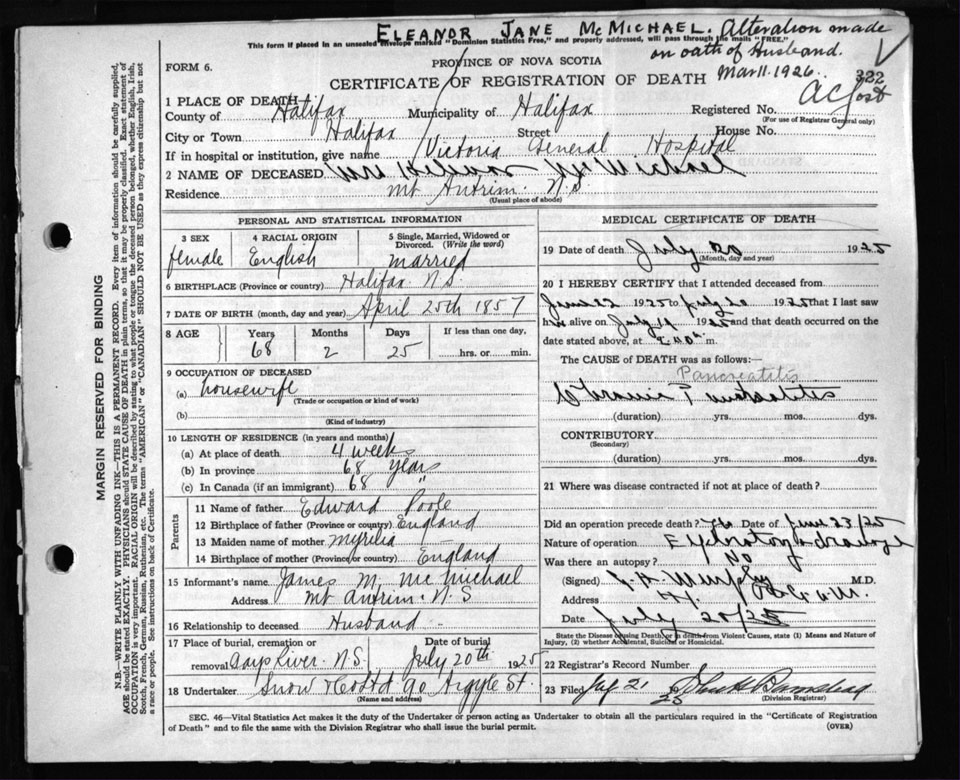 ELEANOR JANE McMICHAEL. Alteration made
This form if placed in an unsealed envelope marked "Dominion Statistics Free," and properly addressed, will pass through the mails "FREE."
on oath of Husband.
FORM 6.
PROVINCE OF NOVA SCOTIA
Mar 11. 1926.
CERTIFICATE OF REGISTRATION OF DEATH
322
A C Jost
1 PLACE OF DEATH—
County of Halifax Municipality of Halifax Registered No.
(For use of Registrar General only)
City or Town Halifax Street House No.
If in hospital or institution, give name Victoria General Hospital
2 NAME OF DECEASED Mrs McMichael
Residence Mt Antrim. N.S.
(Usual place of abode)
PERSONAL AND STATISTICAL INFORMATION
3 SEX 4 RACIAL ORIGIN 5 Single, Married, Widowed or Divorced. (Write the word)
female English married
6 BIRTHPLACE (Province or country) Halifax N.S.
7 DATE OF BIRTH (month, day and year) April 25th 1857
8 AGE Years Months Days If less than one day,
68 2 25 hrs. or min.
9 OCCUPATION OF DECEASED
(a) housewife
(Trade or occupation or kind of work)
(b)
(Kind of industry)
10 LENGTH OF RESIDENCE (in years and months)
(a) At place of death 4 weeks
(b) In province 68 years
(c) In Canada (if an immigrant) 68 "
Parents
11 Name of father Edward Poole
12 Birthplace of father (Province or country) England
13 Maiden name of mother
14 Birthplace of mother (Province or country) England
15 Informant's name James M. McMichael
Address Mt Antrim. N.S
16 Relationship to deceased Husband
17 Place of burial, cremation or Date of burial
removal Gays River. N.S. July 20th 1925
18 Undertaker Snow & Co Ltd 90 Argyle St.
(Name and address)
MEDICAL CERTIFICATE OF DEATH
19 Date of death July 20 1925
(Month, day and year)
20 I HEREBY CERTIFY that I attended deceased from
June 22 1925 to July 20 1925 that I last saw
h alive on July 19 1925 and that death occurred on
date stated above, at 2.40 m.
The CAUSE OF DEATH was as follows:—
Pancreatitis
Chronic Pancreatitis
(duration) yrs. mos. dys.
CONTRIBUTORY
(Secondary)
(duration) yrs. mos. dys.
21 Where was disease contracted if not at place of death?
Did an operation precede death? Date of June 23/25
Nature of operation Exploratory & drainage
Was there an autopsy? No
(Signed) Murphy M.D.
Address
Date July 20/25
State the Disease causing Death, or in death from Violent Causes, state (1) Means and Nature of
Injury, (2) whether Accidental, Suicidal or Homicidal.
22 Registrar's Record Number
23 Filed July 21 25
(Division Registrar)
SEC. 46—Vital Statistics Act makes it the duty of the Undertaker or person acting as Undertaker to obtain all the particulars required in the "Certificate of Registration
of Death" and to file the same with the Division Registrar who shall issue the burial permit.
(OVER)
MARGIN RESERVED FOR BINDING
N.B.—WRITE PLAINLY WITH UNFADING INK—THIS IS A PERMANENT RECORD. Every item of information should be carefully supplied.
AGE should be stated EXACTLY. PHYSICIANS should STATE CAUSE OF DEATH in plain terms, so that it may be properly classified. Exact statement of
OCCUPATION is very important. RACIAL ORIGIN will be described by stating to what people or tongue the deceased person belonged, whether English, Irish,
Scotch, French, German, Russian, Ruthenian, etc. The terms "AMERICAN" or "CANADIAN" SHOULD NOT BE USED as they express citizenship but not
a race or people. See instructions on back of Certificate.